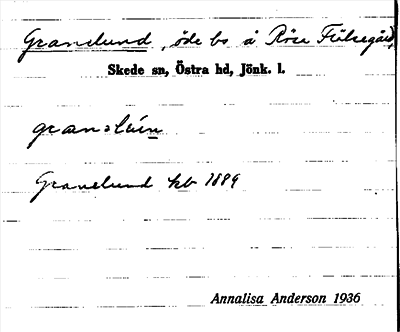 Granelund, öde bs å Röse Fälsegård,
Skede sn, Östra hd, Jönk. l.
Granelund kb 1889
Annalisa Anderson 1936